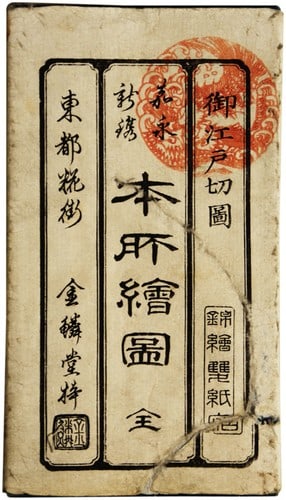 御江戸切圖
錦繪雙紙店
嘉永
新鐫
本所繪圖 全
東都糀街 金鱗堂梓